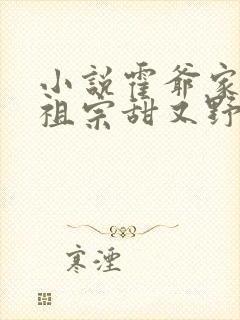 小说霍爷家
祖宗甜又野
寒湮